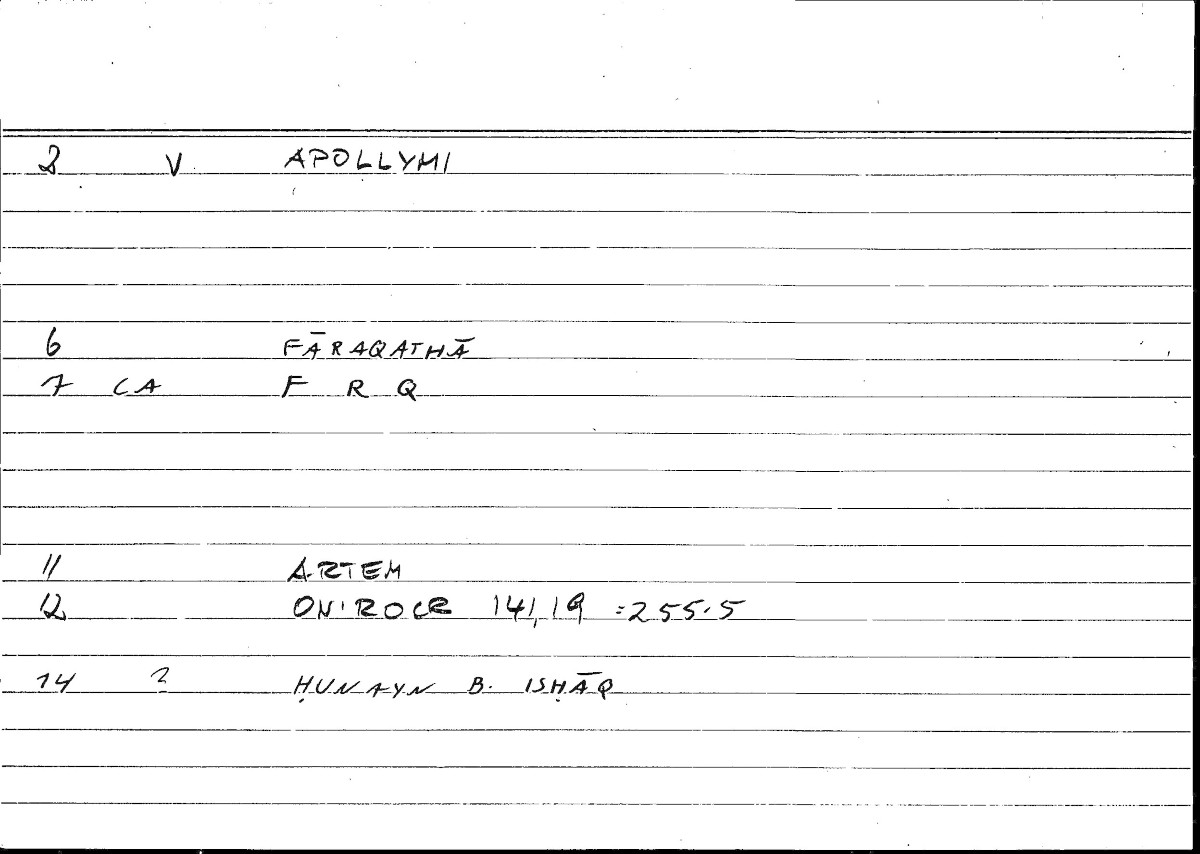 2 V APOLLYMI
6 FĀRAQATHĀ
7 CA F R Q
11 ARTEM
12 ONIROCR 141,19 =255.5
14 2 ḤUNAYN B. ISḤĀQ